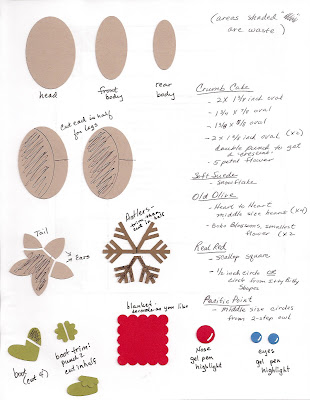 (areas shaded " "
are waste)
head
front
body
rear
body
Cut each in half
for legs
Crumb Cake
- 2 x 1 3/8 inch oval
- 1 3/4 x 7/8 oval
- 1 3/8 x 5/8 oval
- 2 x 1 3/8 inch oval (x2)
double punch to get
a crescent
- 5 petal flower
Soft Suede
- Snowflake
Old Olive
- Heart to Heart
middle size hearts (x4)
- Boho Blossoms, smallest
flower (x2
Real Red
- Scallop square
- 1/2 inch circle or
circle from Itty Bitty
Shapes
Pacific Point
- middle size circles
from 2-step owl
Tail
Ears
Antlers -
trim then
cut in half
boot
(cut 4)
boot trim:
punch 2
cut in half
blanket -
decorate as you like
Nose
gel pen
highlight
eyes
gel pen
highlight